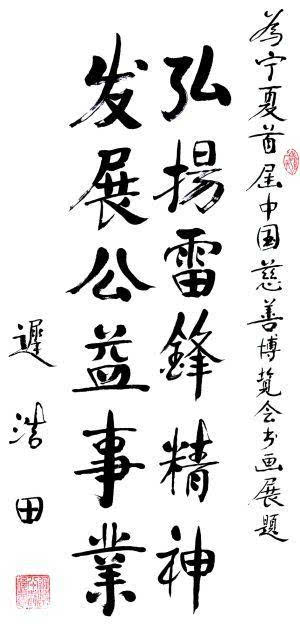 為宁夏首届中国慈善博覧会书画展题
弘揚雷鋒精神
发展公益事業
遲浩田